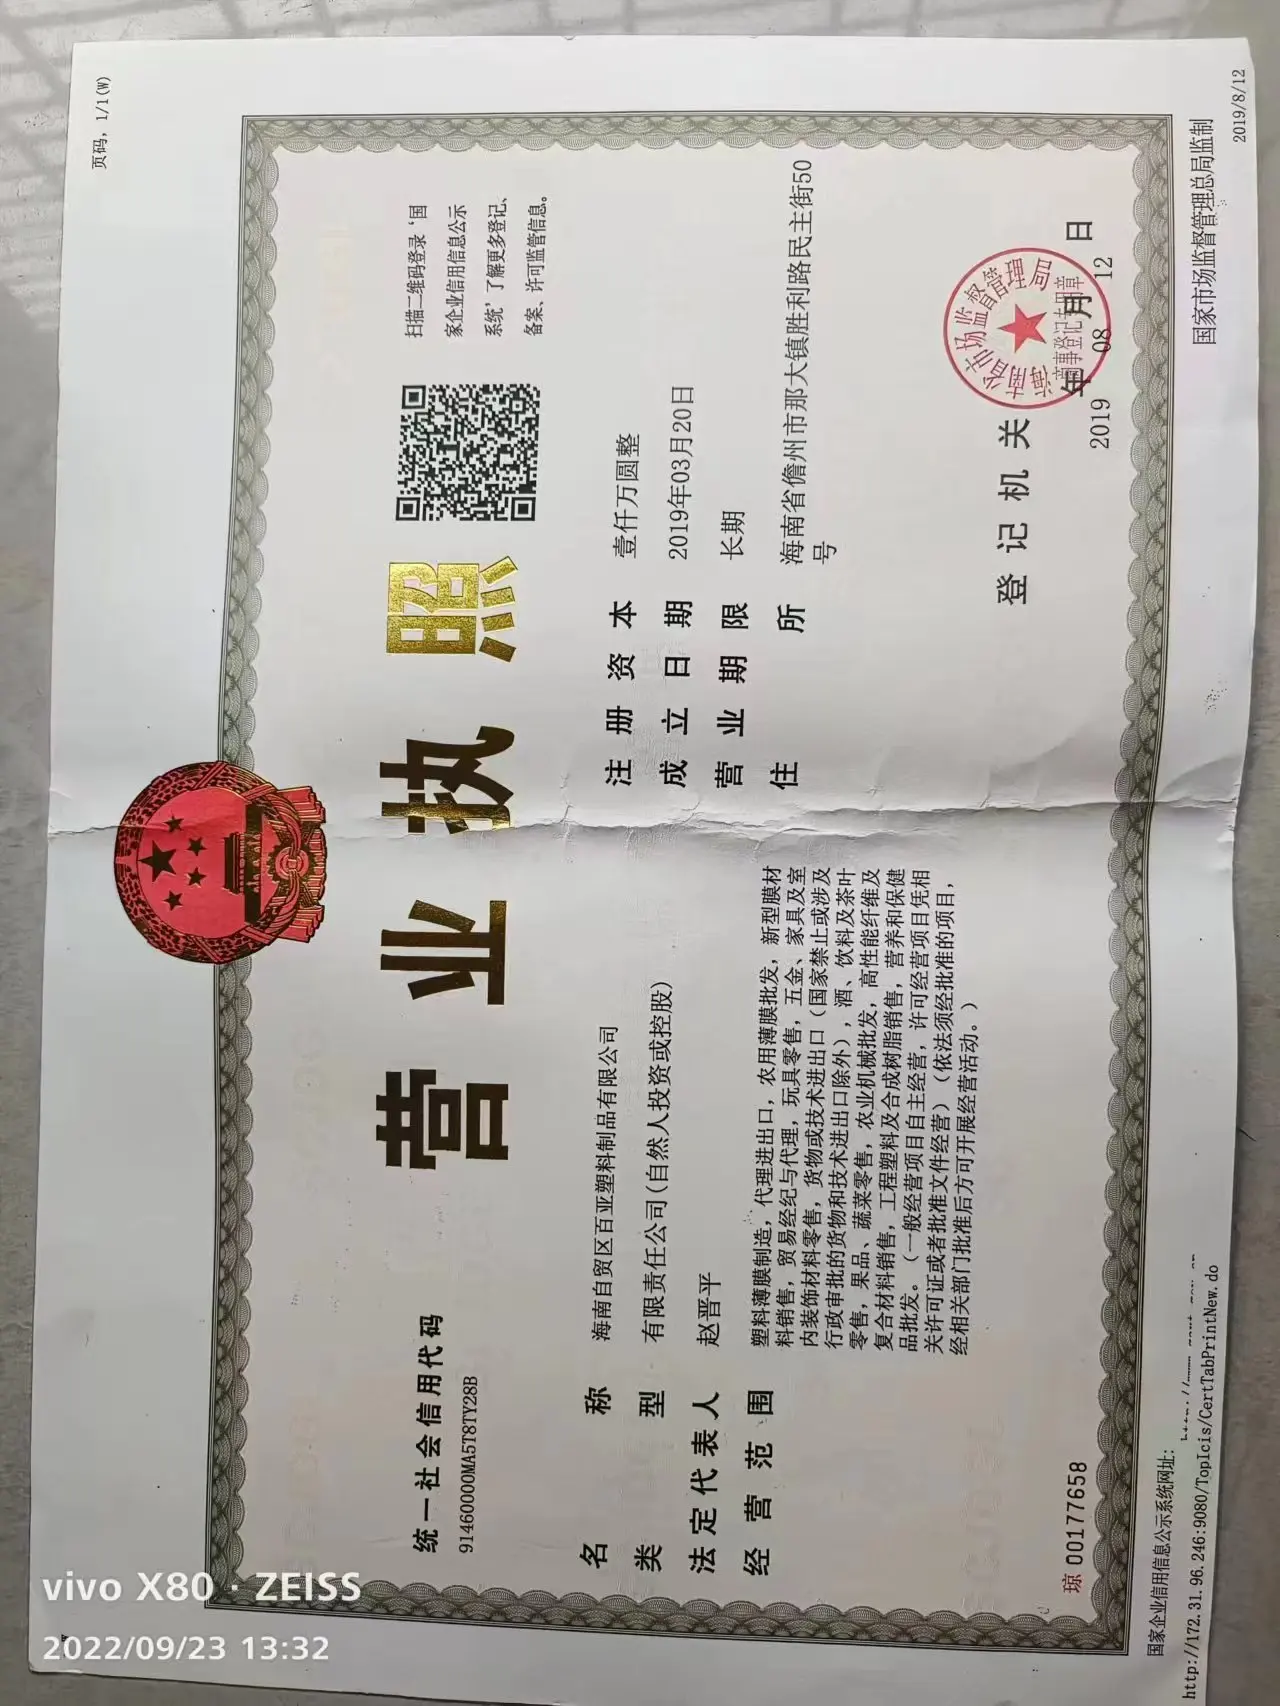 页码，1/1(W)
营业执照
统一社会信用代码
91460000MA5T8TY28B
扫描二维码登录‘国
家企业信用信息公示
系统’了解更多登记、
备案、许可监管信息。
名 称 海南自贸区百亚塑料制品有限公司
类 型 有限责任公司(自然人投资或控股)
法定代表人 赵晋平
经 营 范 围 塑料薄膜制造，代理进出口，农用薄膜批发，新型膜材
料销售，贸易经纪与代理，玩具零售，五金、家具及室
内装饰材料零售，货物或技术进出口（国家禁止或涉及
行政审批的货物和技术进出口除外），酒、饮料及茶叶
零售，果品、蔬菜零售，农业机械批发，高性能纤维及
复合材料销售，工程塑料及合成树脂销售，营养和保健
品批发。（一般经营项目自主经营，许可经营项目凭相
关许可证或者批准文件经营）（依法须经批准的项目，
经相关部门批准后方可开展经营活动。）
注 册 资 本 壹仟万圆整
成 立 日 期 2019年03月20日
营 业 期 限 长期
住 所 海南省儋州市那大镇胜利路民主街50
号
登 记 机 关
海南省市场监督管理局
商事登记专用章
2019 年 08 月 12 日
琼 00177658
国家企业信用信息公示系统网址：
国家市场监督管理总局监制
http://172.31.96.246:9080/TopIcis/CertTabPrintNew.do
2019/8/12
vivo X80 · ZEISS
2022/09/23 13:32